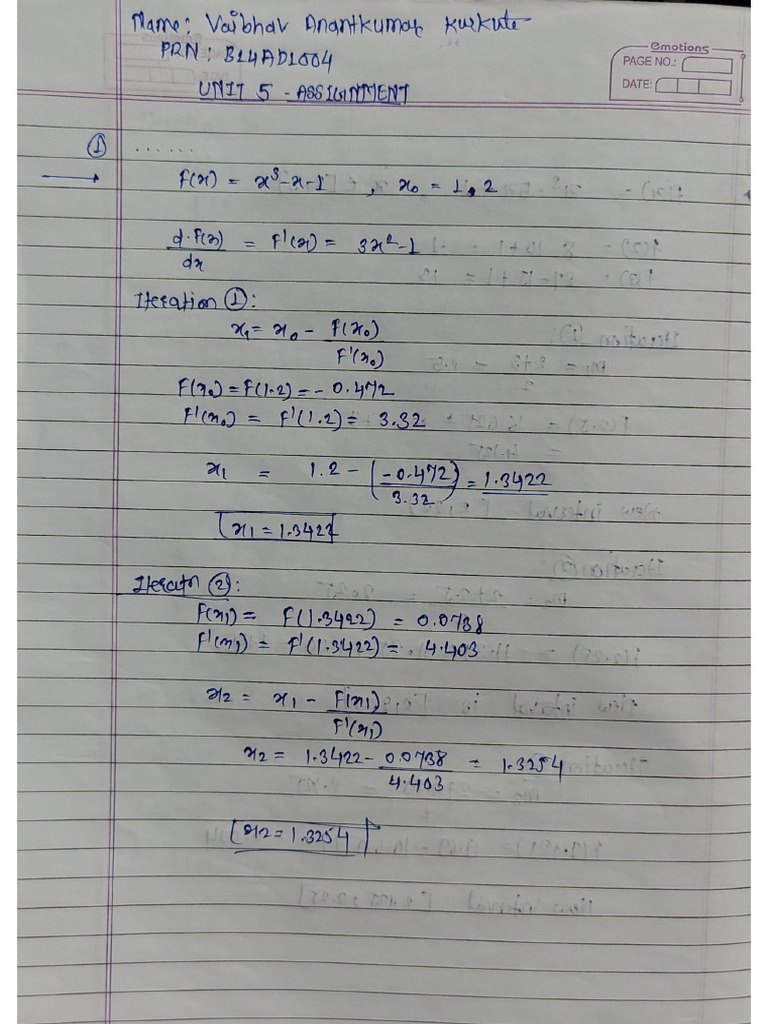 Name: Vaibhav Anantkumar Kurkute
PRN: B24AD1004
UNIT 5 - ASSIGNMENT
emotions
PAGE NO.:
DATE:
① ......
→ f(x) = x³-x-1 , x₀ = 1.2
d.f(x)/dx = f'(x) = 3x²-1
Iteration ①:
x₁ = x₀ - f(x₀)/f'(x₀)
f(x₀) = f(1.2) = -0.472
f'(x₀) = f'(1.2) = 3.32
x₁ = 1.2 - (-0.472/3.32) = 1.3422
x₁ = 1.3422
Iteratn ②:
f(x₁) = f(1.3422) = 0.0738
f'(x₁) = f'(1.3422) = 4.403
x₂ = x₁ - f(x₁)/f'(x₁)
x₂ = 1.3422 - 0.0738/4.403 = 1.3254
x₂ = 1.3254